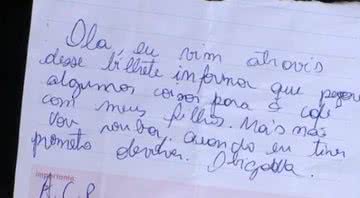 Ola, eu vim atravis
desse bilhete informar que pegue
algumas coisas para a
com meus filhos. Mais não
vou roubar. quando eu tiver
prometo devolver. Obrigada.
importante
A.C.P